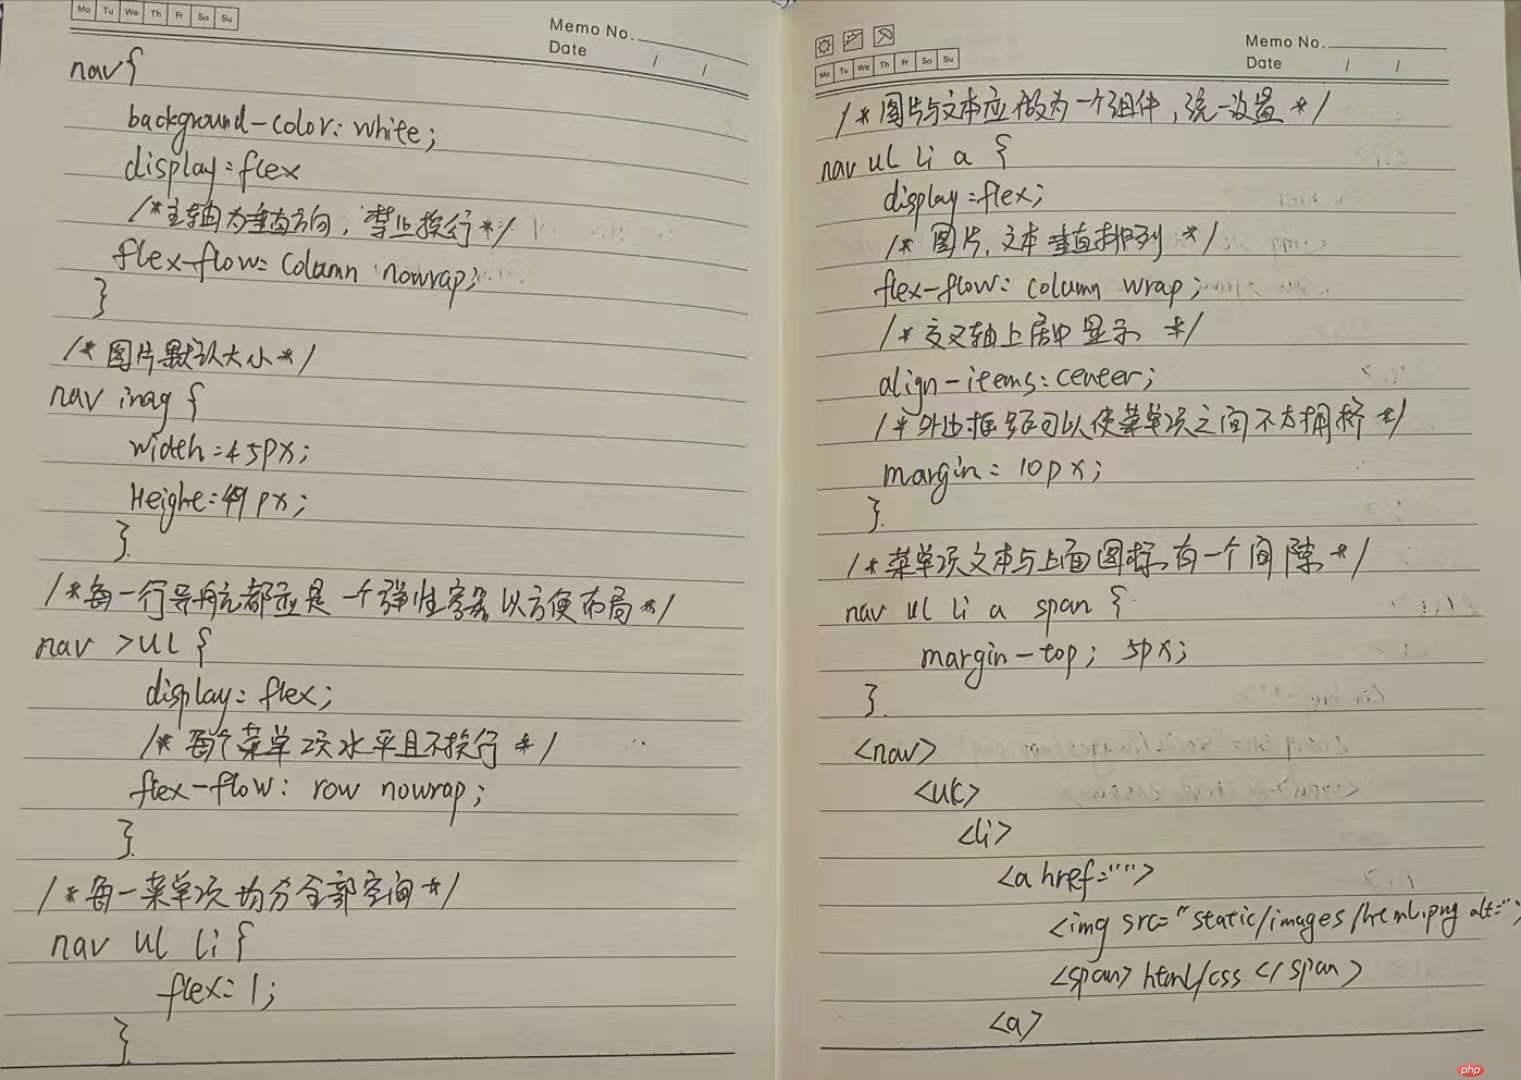 Mo Tu We Th Fr Sa Su
Memo No.
Date / /
nav{
background-color: white;
display: flex
/*主轴为垂直方向，禁止换行*/
flex-flow: column nowrap;
}
/*图片默认大小*/
nav imag {
width: 45px;
Height: 49px;
}
/*每一行导航都应是一个弹性容器以方便布局*/
nav >ul {
display: flex;
/*每个菜单项水平且不换行*/
flex-flow: row nowrap;
}
/*每一菜单项均分全部空间*/
nav ul li {
flex: 1;
}
Mo Tu We Th Fr Sa Su
Memo No.
Date / /
/*图片与文本应做为一个组件，统一设置*/
nav ul li a {
display: flex;
/*图片,文本垂直排列*/
flex-flow: column wrap;
/*交叉轴上居中显示*/
align-items: center;
/*外边框距可以使菜单项之间不太拥挤*/
margin: 10px;
}
/*菜单项文本与上面图标有一个间隙*/
nav ul li a span {
margin-top; 5px;
}
<nav>
<ul>
<li>
<a href="">
<img src="static/images/html.png alt="
<span> html/css </span>
<a>
php